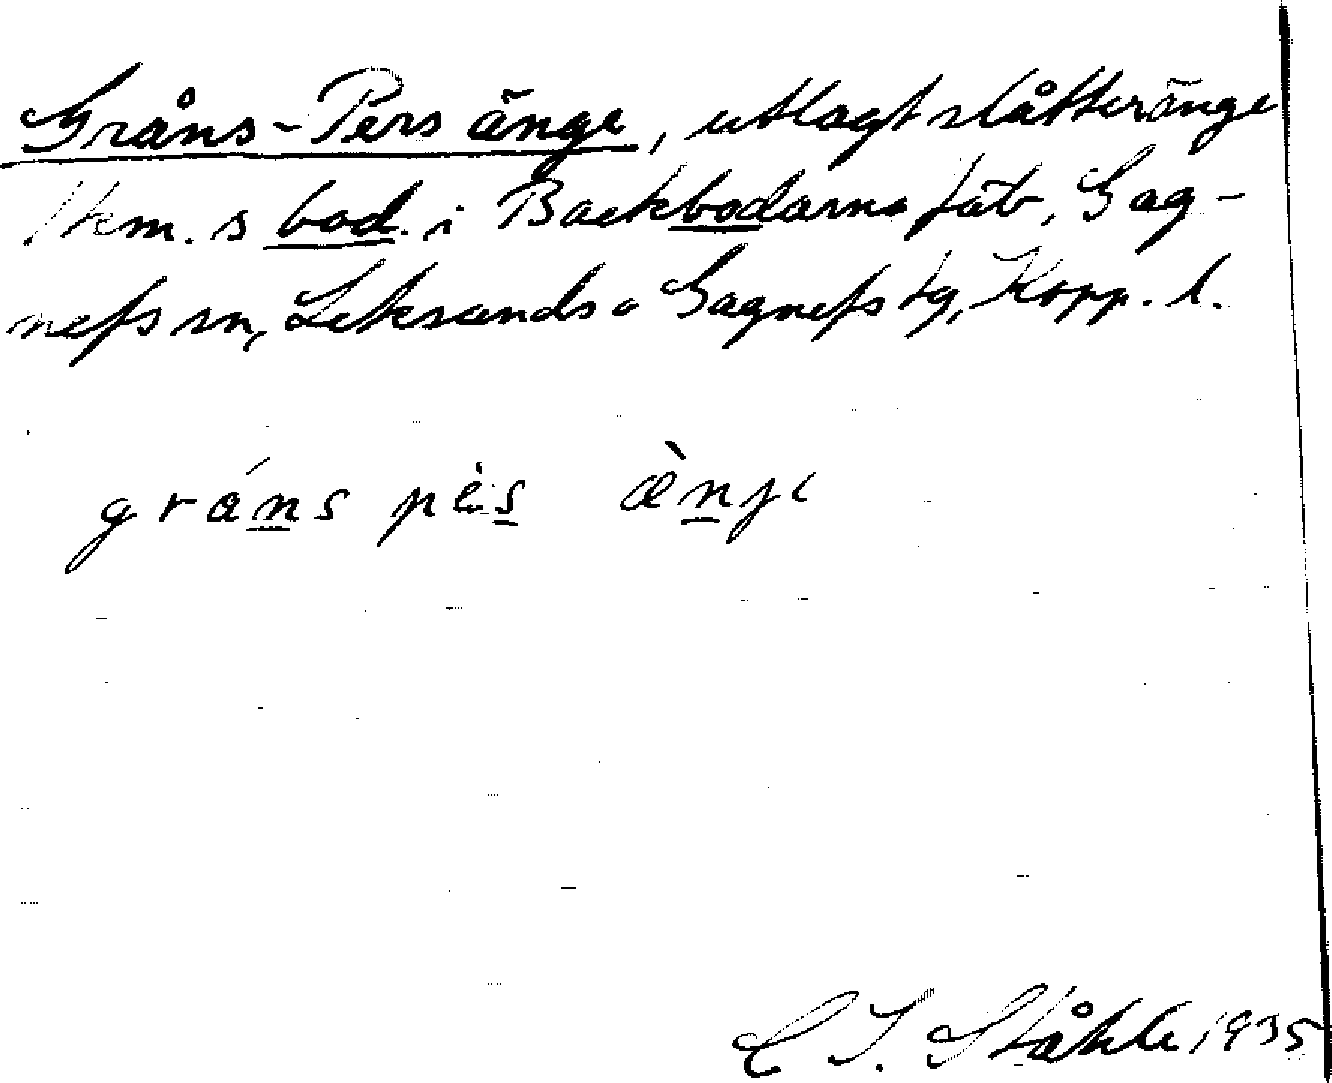 Gråns-Pers änge, utlagt slåtteränge
1 km. s bod. i Backbodarna fäb, Gag-
nefs sn, Leksands o Gagnefs tg, Kopp. l.
gráns pès ænje
C I. Ståhle, 1935